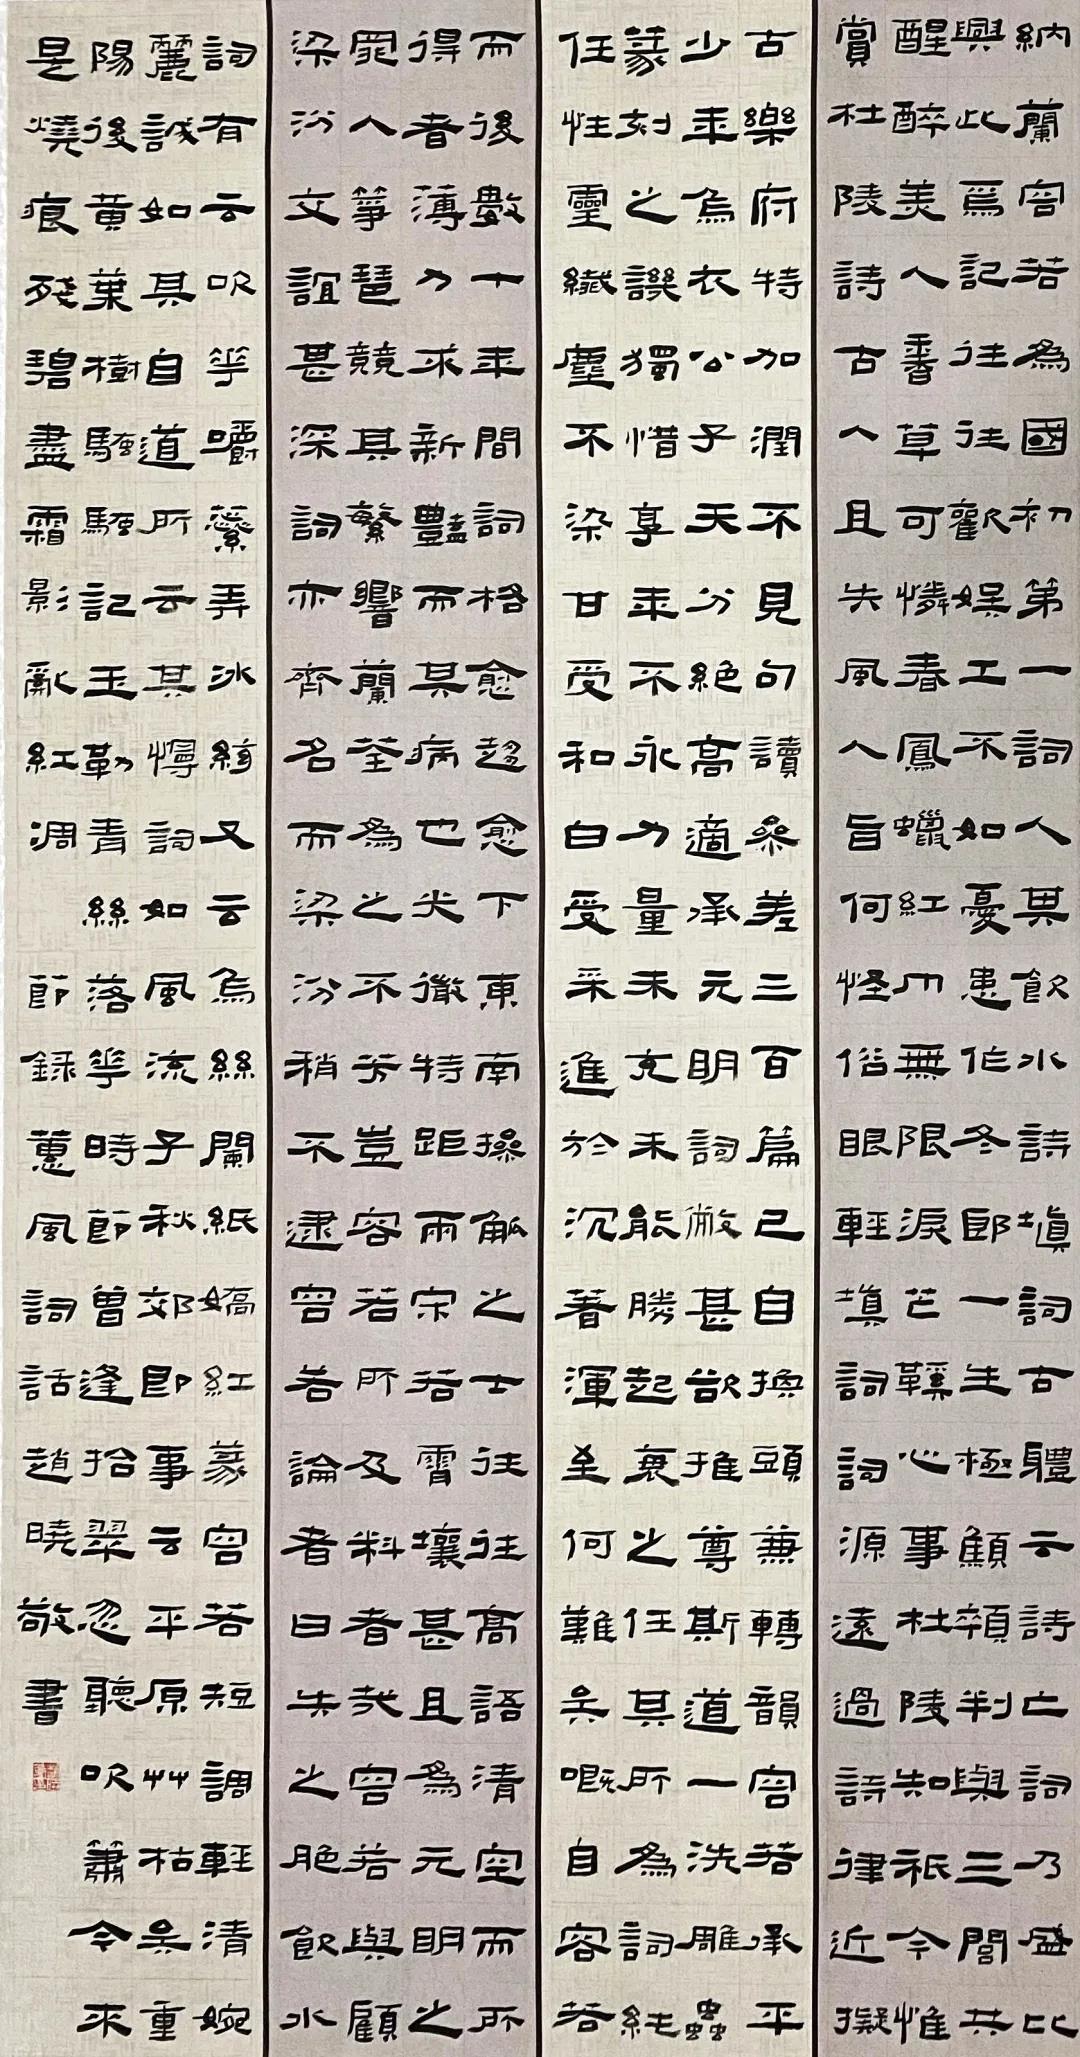 納蘭容若為國初第一詞人其飲水詩填詞古體云詩亡詞乃盛比
興此焉記往往歡娛工不如憂患作冬郎一生極顦顇判與三閭共
醒醉美人香草可憐春鳳蠟紅巾無限淚芒鞵心事杜陵知祇今惟
賞杜陵詩古人且失風人旨何怪俗眼輕填詞詞源遠過詩律近擬
古樂府特加潤不見句讀參差三百篇已自換頭兼轉韻容若承平
少年烏衣公子天分絕高適承元明詞敝甚欲推尊斯道一洗雕蟲
篆刻之譏獨惜享年不永力量未充未能勝起衰之任其所為詞純
任性靈纖塵不染甘受和白受采進於沉著渾至何難矣嘅自容若
而後數十年間詞格愈趨愈下東南操觚之士往往高語清空而所
得者薄力求新豔而其病也尖微特距兩宋若霄壤甚且為元明之
罪人箏琶競其繁響蘭荃為之不芳豈容若所及料者哉容若與顧
梁汾文誼甚深詞亦齊名而梁汾稍不逮容若論者曰失之脆飲水
詞有云吹花嚼蘂弄冰絃又云烏絲闌紙嬌紅篆容若短調輕清婉
麗誠如其自道所云其慢詞如風流子秋郊即事云平原艸枯矣重
陽後黃葉樹騷騷記玉勒青絲落花時節曾逢拾翠忽聽吹簫今來
是燒痕殘碧盡霜影亂紅凋 節錄蕙風詞話趙曉敬書